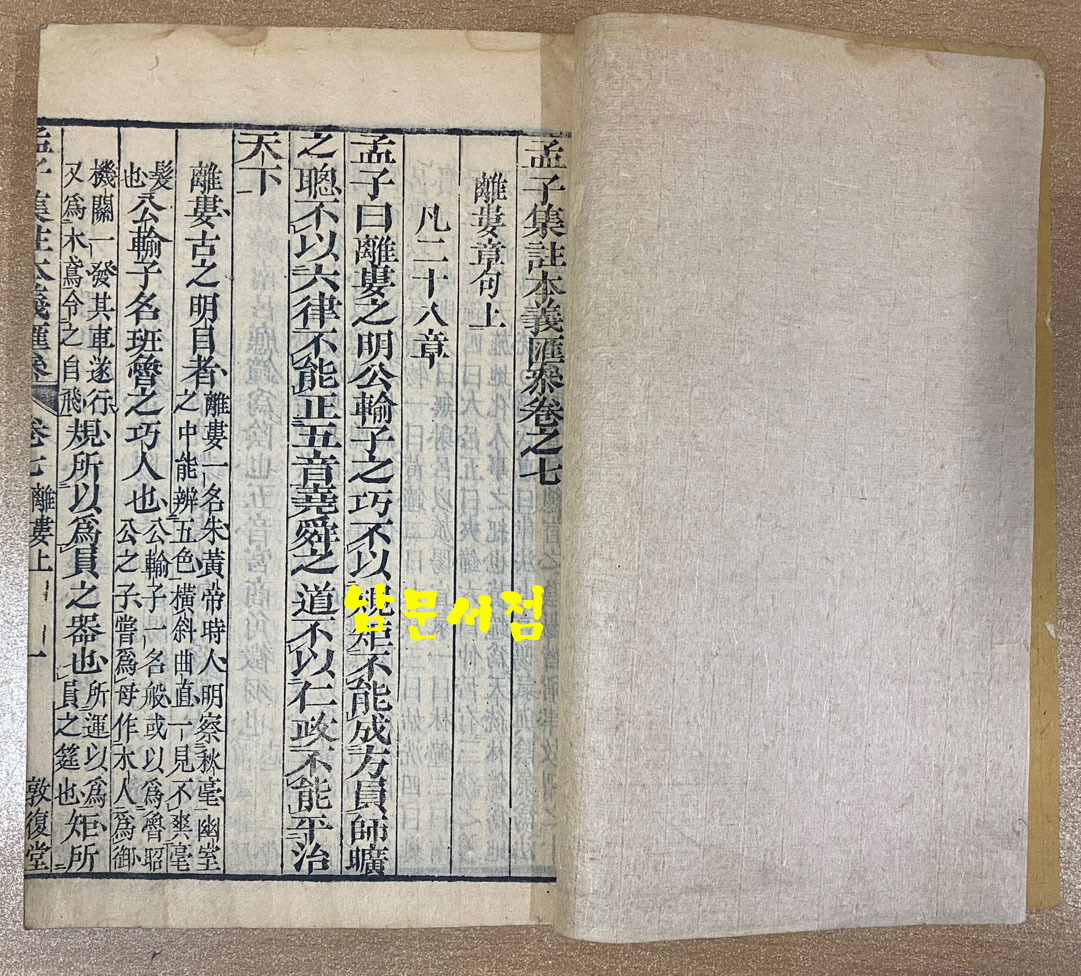 孟子集註本義匯叅卷之七
離婁章句上
凡二十八章
孟子曰離婁之明公輸子之巧不以規矩不能成方員師曠
之聰不以六律不能正五音堯舜之道不以仁政不能平治
天下
離婁古之明目者離婁一名朱黃帝時人明察秋毫幽室之中能辨五色橫斜曲直一見不爽毫
髮也公輸子名班魯之巧人也公輸子一名般或以爲魯昭公之子嘗爲母作木人爲御
機關一發其車遂行又爲木鳶令之自飛規所以爲員之器也所運以爲員之筳也矩所
孟子集註本義匯叅 卷七 離婁上 一 敦復堂
남문서점